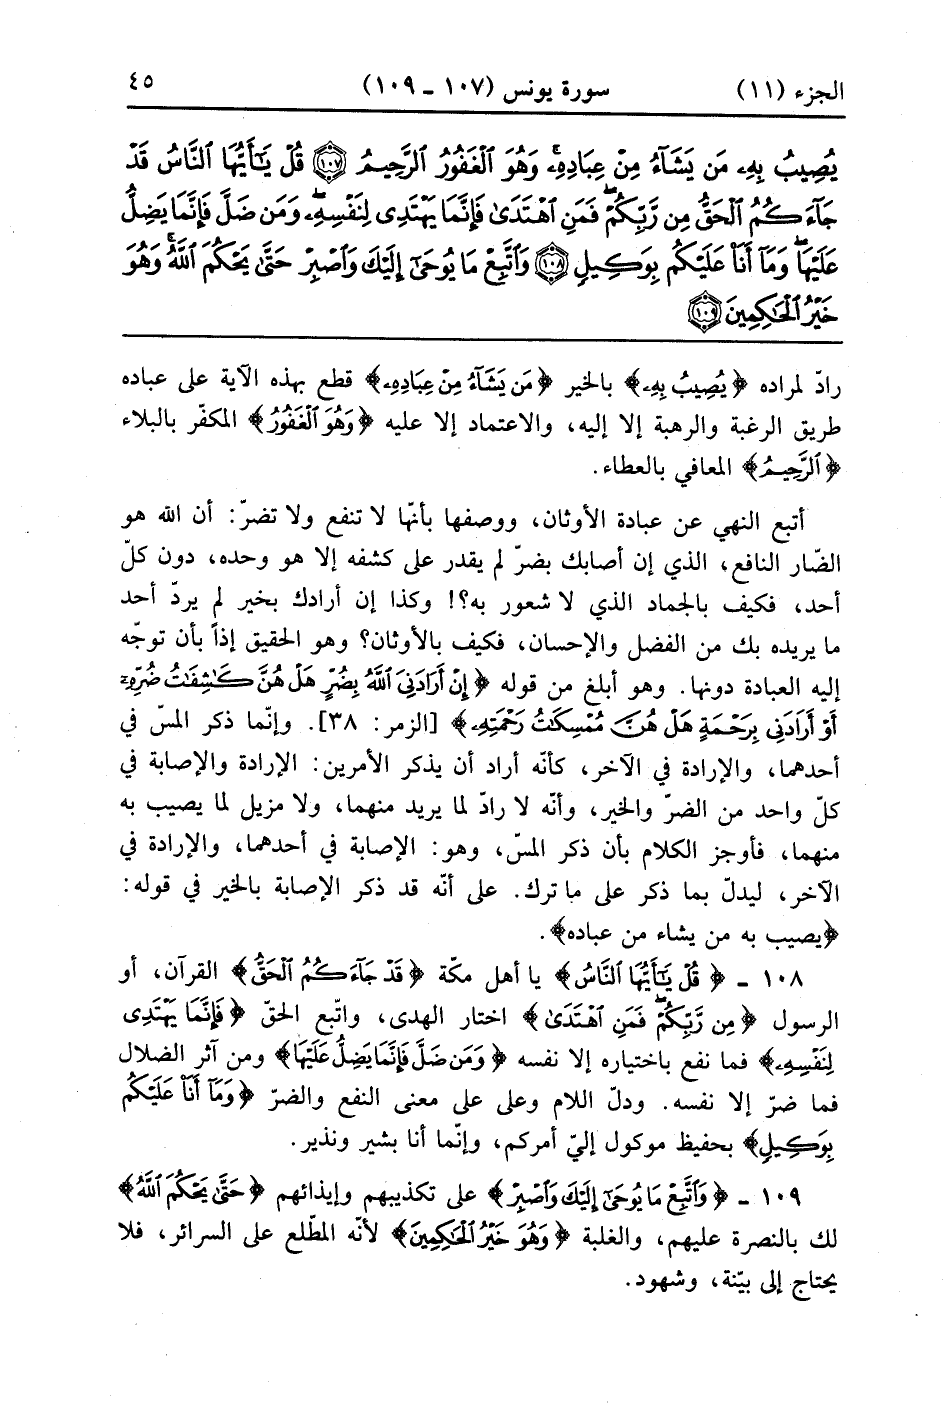 الجزء (١١) سورة يونس (١٠٧ - ١٠٩) ٤٥
يُصِيبُ بِهِۦ مَن يَشَآءُ مِنْ عِبَادِهِۦۚ وَهُوَ ٱلْغَفُورُ ٱلرَّحِيمُ ﴿١٠٧﴾ قُلْ يَٰٓأَيُّهَا ٱلنَّاسُ قَدْ
جَآءَكُمُ ٱلْحَقُّ مِن رَّبِّكُمْۖ فَمَنِ ٱهْتَدَىٰ فَإِنَّمَا يَهْتَدِى لِنَفْسِهِۦۖ وَمَن ضَلَّ فَإِنَّمَا يَضِلُّ
عَلَيْهَاۖ وَمَآ أَنَا۠ عَلَيْكُم بِوَكِيلٍ ﴿١٠٨﴾ وَٱتَّبِعْ مَا يُوحَىٰٓ إِلَيْكَ وَٱصْبِرْ حَتَّىٰ يَحْكُمَ ٱللَّهُۚ وَهُوَ
خَيْرُ ٱلْحَٰكِمِينَ ﴿١٠٩﴾
رادّ لمراده ﴿يُصِيبُ بِهِۦ﴾ بالخير ﴿مَن يَشَآءُ مِنْ عِبَادِهِۦ﴾ قطع بهذه الآية على عباده
طريق الرغبة والرهبة إلا إليه، والاعتماد إلا عليه ﴿وَهُوَ ٱلْغَفُورُ﴾ المكفّر بالبلاء
﴿ٱلرَّحِيمُ﴾ المعافي بالعطاء.
أتبع النهي عن عبادة الأوثان، ووصفها بأنّها لا تنفع ولا تضرّ: أن الله هو
الضّار النافع، الذي إن أصابك بضرّ لم يقدر على كشفه إلا هو وحده، دون كلّ
أحد، فكيف بالجماد الذي لا شعور به؟! وكذا إن أرادك بخير لم يردّ أحد
ما يريده بك من الفضل والإحسان، فكيف بالأوثان؟ وهو الحقيق إذاً بأن توجّه
إليه العبادة دونها. وهو أبلغ من قوله ﴿إِنْ أَرَادَنِىَ ٱللَّهُ بِضُرٍّ هَلْ هُنَّ كَٰشِفَٰتُ ضُرِّهِۦٓ
أَوْ أَرَادَنِى بِرَحْمَةٍ هَلْ هُنَّ مُمْسِكَٰتُ رَحْمَتِهِۦ﴾ [الزمر: ٣٨]. وإنّما ذكر المسّ في
أحدهما، والإرادة في الآخر، كأنّه أراد أن يذكر الأمرين: الإرادة والإصابة في
كلّ واحد من الضرّ والخير، وأنّه لا رادّ لما يريد منهما، ولا مزيل لما يصيب به
منهما، فأوجز الكلام بأن ذكر المسّ، وهو: الإصابة في أحدهما، والإرادة في
الآخر، ليدلّ بما ذكر على ما ترك. على أنّه قد ذكر الإصابة بالخير في قوله:
﴿يصيب به من يشاء من عباده﴾.
١٠٨ - ﴿قُلْ يَٰٓأَيُّهَا ٱلنَّاسُ﴾ يا أهل مكّة ﴿قَدْ جَآءَكُمُ ٱلْحَقُّ﴾ القرآن، أو
الرسول ﴿مِن رَّبِّكُمْۖ فَمَنِ ٱهْتَدَىٰ﴾ اختار الهدى، واتّبع الحقّ ﴿فَإِنَّمَا يَهْتَدِى
لِنَفْسِهِۦ﴾ فما نفع باختياره إلا نفسه ﴿وَمَن ضَلَّ فَإِنَّمَا يَضِلُّ عَلَيْهَا﴾ ومن آثر الضلال
فما ضرّ إلا نفسه. ودلّ اللام وعلى على معنى النفع والضرّ ﴿وَمَآ أَنَا۠ عَلَيْكُم
بِوَكِيلٍ﴾ بحفيظ موكول إليّ أمركم، وإنّما أنا بشير ونذير.
١٠٩ - ﴿وَٱتَّبِعْ مَا يُوحَىٰٓ إِلَيْكَ وَٱصْبِرْ﴾ على تكذيبهم وإيذائهم ﴿حَتَّىٰ يَحْكُمَ ٱللَّهُ﴾
لك بالنصرة عليهم، والغلبة ﴿وَهُوَ خَيْرُ ٱلْحَٰكِمِينَ﴾ لأنّه المطّلع على السرائر، فلا
يحتاج إلى بيّنة، وشهود.